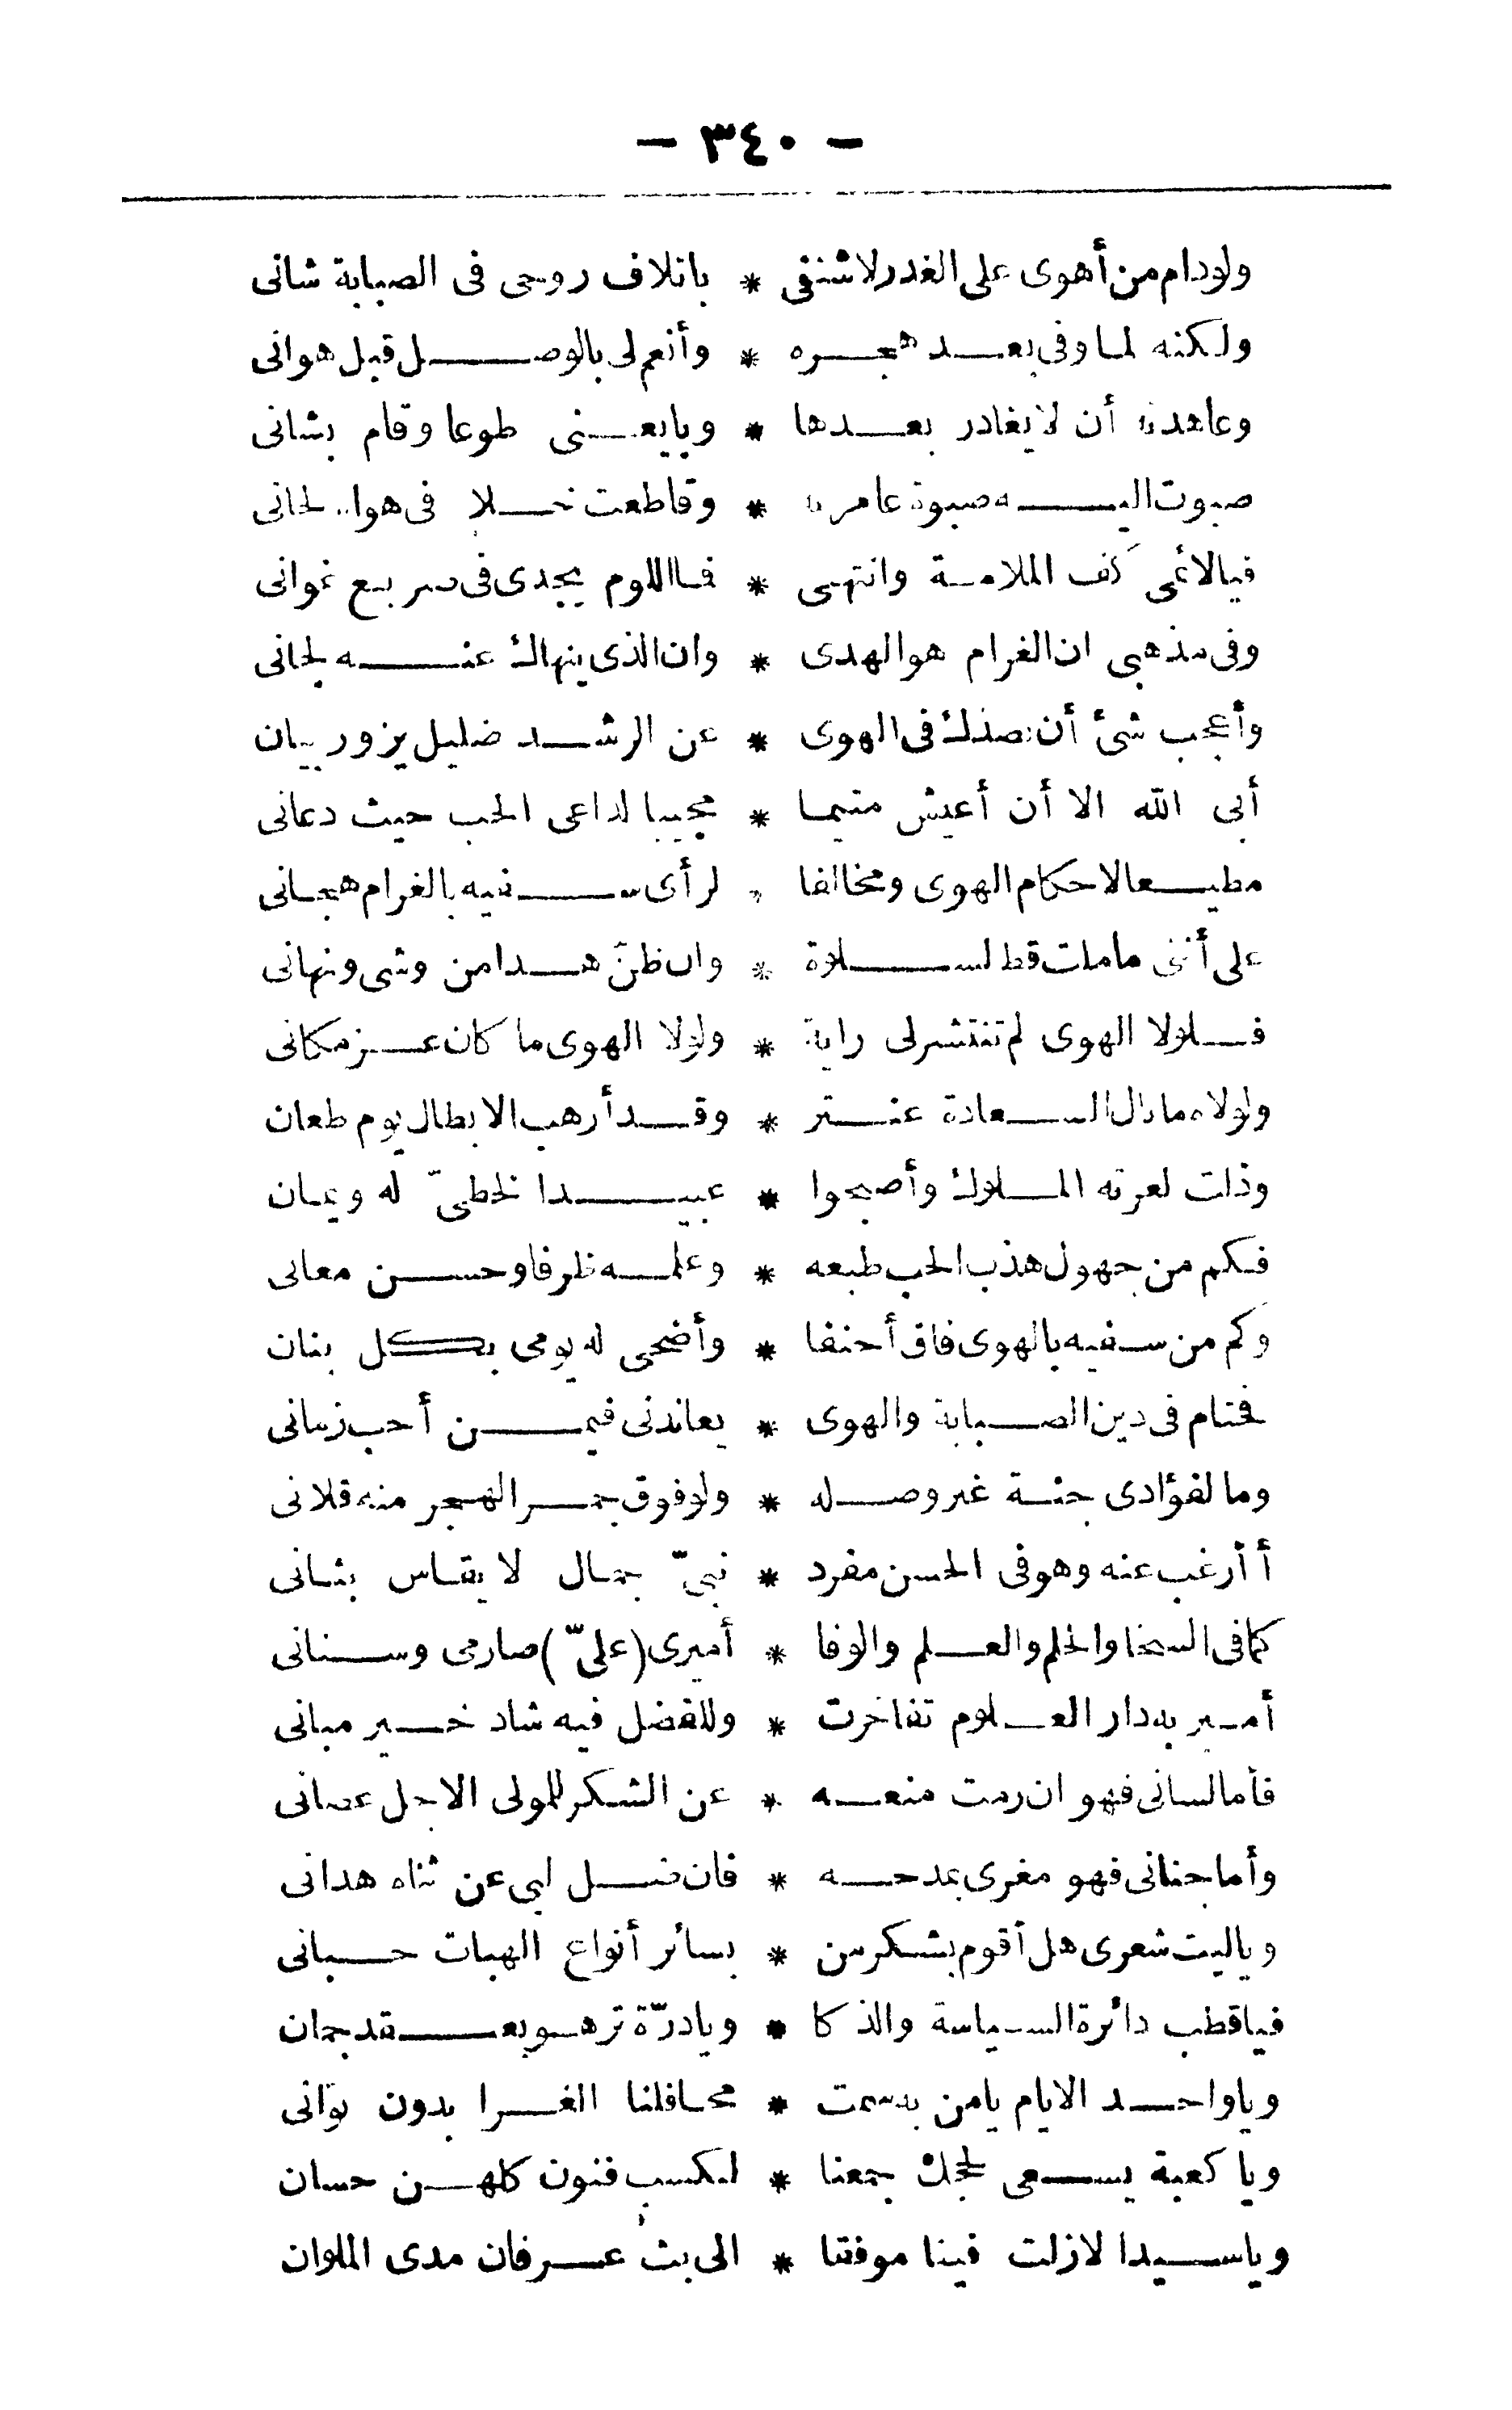 — ٣٤٠ —
ولو دام من أهوى على الغدر لاشتفى * باتلاف روحى فى الصبابة شانى
ولكنه لما وفى بعد هجره * وأنعم لى بالوصل قبل هوانى
وعاهدته أن لا يغادر بعدها * وبايعنى طوعا وقام بشانى
صبوت اليه صبوة عامرية * وقاطعت خلا فى هواه لحانى
فيالائمى كف الملامة وانتهى * فما اللوم يجدى فى صريع غوانى
وفى مذهبى ان الغرام هو الهدى * وان الذى ينهاك عنه لجانى
وأعجب شئ أن يصدك فى الهوى * عن الرشد ضليل بزور بيان
أبى الله الا أن أعيش متيما * مجيبا لداعى الحب حيث دعانى
مطيعا لاحكام الهوى ومخالفا * لرأى سفيه بالغرام هجانى
على أننى ما ملت قط لسلوة * وان ظنّ هذا من وشى ونهانى
فلولا الهوى لم تنتشر لى راية * ولولا الهوى ما كان عز مكانى
ولولاه ما نال السعادة عنتر * وقد أرهب الابطال يوم طعان
وذلت لعزته الملوك وأصبحوا * عبيدا لخطىّ له ويمان
فكم من جهول هذب الحب طبعه * وعلمه ظرفا وحسن معانى
وكم من سفيه بالهوى فاق أحنفا * وأضحى له يومى بكل بنان
فحتام فى دين الصبابة والهوى * يعاندنى فيمن أحب زمانى
وما لفؤادى جنة غير وصله * ولو فوق جمر الهجر منه قلانى
أأرغب عنه وهو فى الحسن مفرد * نبىّ جمال لا يقاس بثانى
كما فى السخا والحلم والعلم والوفا * أميرى (علىّ) صارمى وسنانى
أمير به دار العلوم تفاخرت * وللفضل فيه شاد خير مبانى
فأما لسانى فهو ان رمت منعه * عن الشكر للمولى الاجل عصانى
وأما جنانى فهو مغرى بمدحه * فان ضل لبى عن ثناه هدانى
وياليت شعرى هل أقوم بشكر من * بسائر أنواع الهبات حبانى
فياقطب دائرة السياسة والذكا * ويادرّة تزهو بعقد جمان
وياواحد الايام يامن به سمت * محافلنا الغرا بدون توانى
ويا كعبة يسعى لحجك جمعنا * لكسب فنون كلهن حسان
وياسيدا لازلت فينا موفقا * الى بث عرفان مدى الملوان